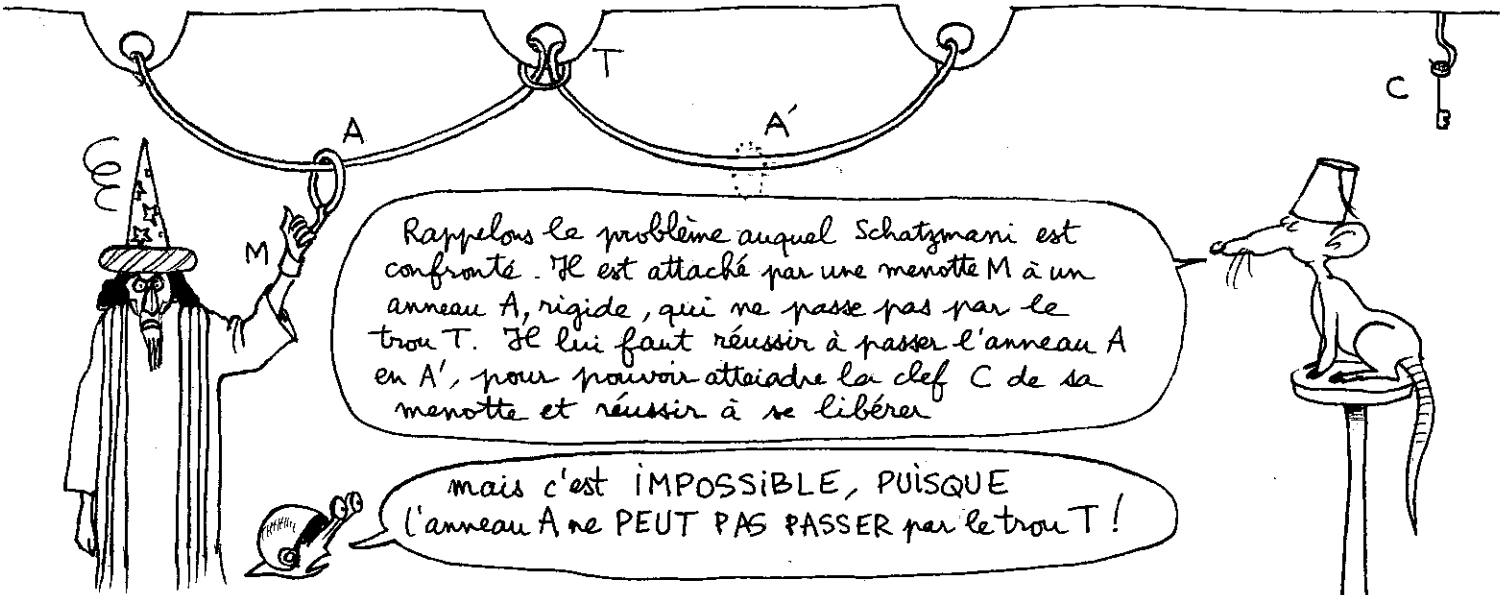 T
C
A
A'
M
Rappelons le problème auquel Schatzmani est
confronté. Il est attaché par une menotte M à un
anneau A, rigide, qui ne passe pas par le
trou T. Il lui faut réussir à passer l'anneau A
en A', pour pouvoir atteindre la clef C de sa
menotte et réussir à se libérer
mais c'est iMPOSSiBLE, PUiSQUE
l'anneau A ne PEUT PAS PASSER par le trou T !